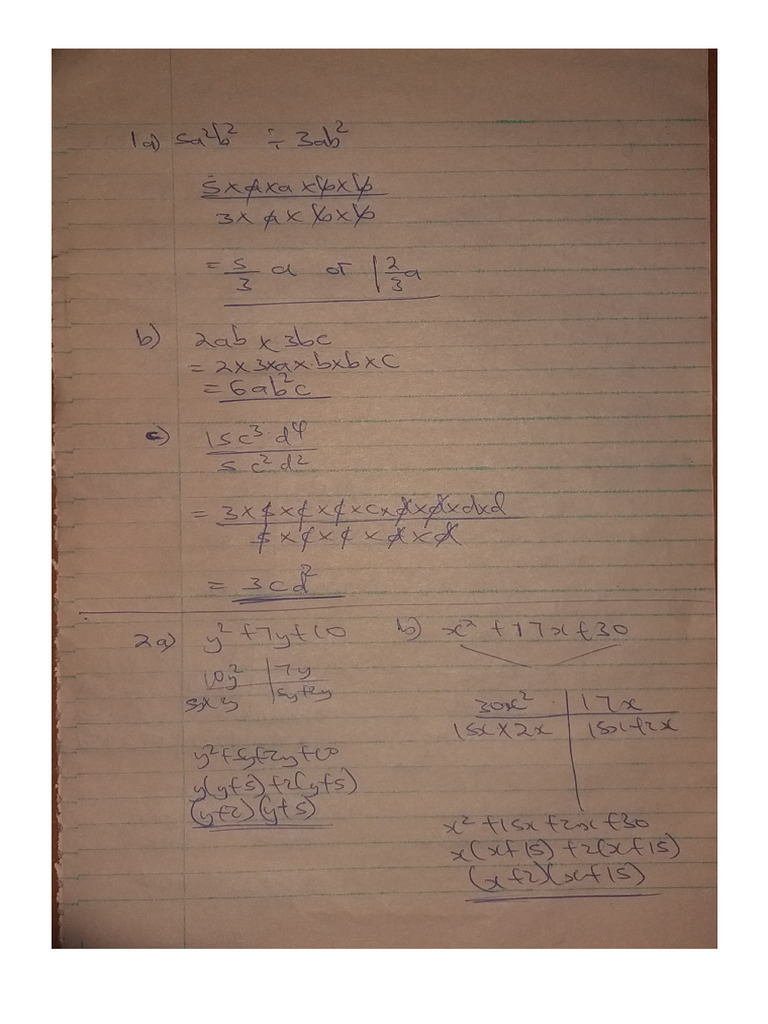 1a) 5a²b² ÷ 3ab²
5 x a x a x b x b
3 x a x b x b
= 5/3 a or 1 2/3 a
b) 2ab x 3bc
= 2 x 3 x a x b x b x c
= 6ab²c
c) 15c³d⁴
5c²d²
= 3 x 5 x c x c x c x d x d x d x d
5 x c x c x d x d
= 3cd²
2a) y² + 7y + 10
10y² | 7y
5y + 2y
y² + 5y + 2y + 10
y(y+5) + 2(y+5)
(y+2)(y+5)
b) x² + 17x + 30
30x² | 17x
15x x 2x | 15x + 2x
x² + 15x + 2x + 30
x(x+15) + 2(x+15)
(x+2)(x+15)